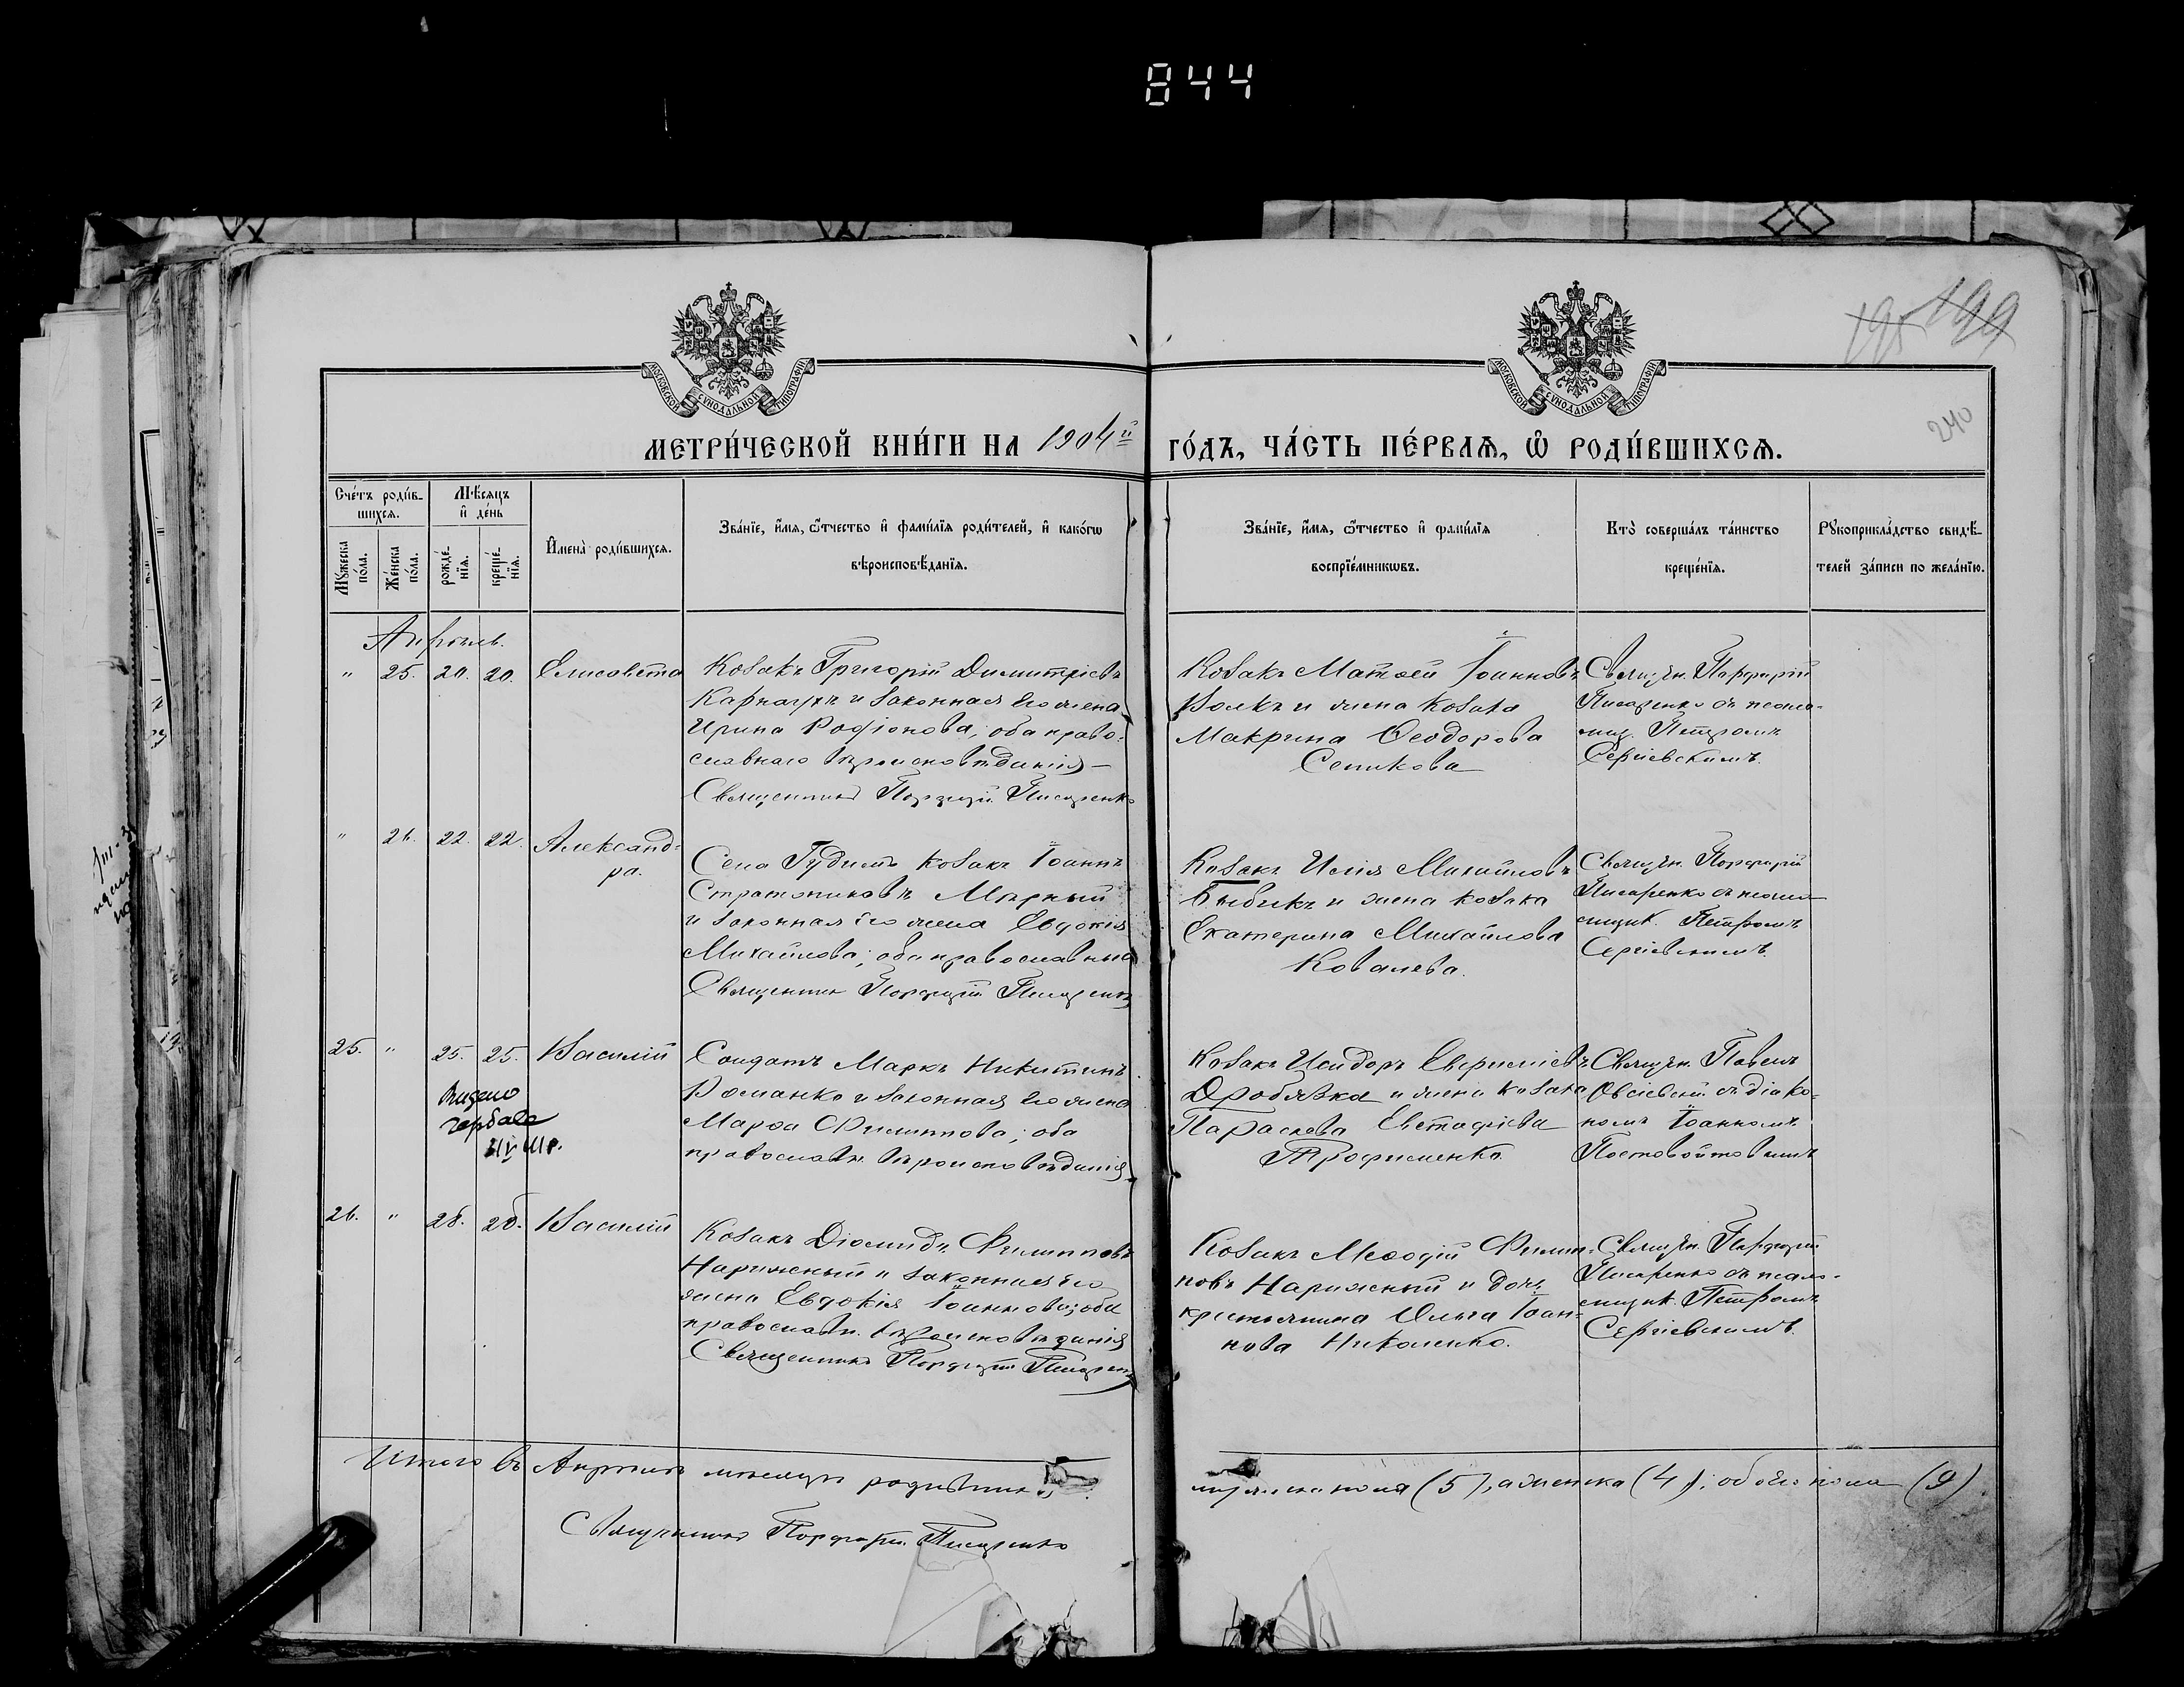 844
195 199
240
МОСКОВСКОЙ СУНОДАЛЬНОЙ ТИПОГРАФІИ
МОСКОВСКОЙ СУНОДАЛЬНОЙ ТИПОГРАФІИ
МЕТРИ́ЧЕСКОЙ КНИ́ГИ НА 1904й ГО́ДЪ, ЧА́СТЬ ПЕ́РВАѦ, Ѡ҆ РОДИ́ВШИХСѦ.
Сче́тъ роди́в-
шихсѧ.
Мѣсѧцъ
и҆ де́нь
Мꙋжеска по́ла.
Же́нска по́ла.
рожде́-
нїѧ.
креще́-
нїѧ.
И҆мена̀ роди́вшихсѧ.
Зва́нїе, и҆́мѧ, ѻ҆́тчество и҆ фами́лїѧ роди́телей, и҆ како́гѡ
вѣроисповѣ́данїѧ.
Зва́нїе, и҆́мѧ, ѻ҆́тчество и҆ фами́лїѧ
воспрїе́мникѡвъ.
Кто̀ соверша́лъ та́инство
креще́нїѧ.
Рꙋкоприкла́дство свидѣ́-
телей за́писи по жела́нїю.
Апрѣль.
" 25. 20. 20. Елисавета
Козакъ Григорій Димитріевъ
Карнаухъ и законная его жена
Ирина Родіонова; оба право-
славнаго вѣроисповѣданія
Священникъ Порфирій Писаренко
Козакъ Матѳей Іоанновъ
Волкъ и жена козака
Макрина Ѳеодорова
Сеникова
Священ. Порфирій
Писаренко съ псалом-
щ. Петромъ
Сергіевскимъ.
" 26. 22. 22. Александ-
ра.
Села Гудимъ козакъ Іоаннъ
Стратониковъ Мѣрный
и законная его жена Евдокія
Михайлова; оба православные
Священникъ Порфирій Писаренко
Козакъ Илія Михайловъ
Бибикъ и жена козака
Екатерина Михайлова
Ковалева.
Священ. Порфирій
Писаренко съ псалом-
щик. Петромъ
Сергіевскимъ.
25. " 25. 25. Василій
Солдатъ Маркъ Никитинъ
Романко и законная его жена
Марѳа Филиппова; оба
православн. вѣроисповѣданія
Козакъ Исидоръ Евѳиміевъ
Дробязка и жена козака
Параскева Евстафіева
Трофименко.
Священ. Павелъ
Овсіевскій съ діако-
номъ Іоанномъ
Постовойтовымъ
Видано
26. " 28. 28. Василій
Козакъ Діомидъ Филипповъ
Нарижный и законная его
жена Евдокія Іоаннова; оба
православн. вѣроисповѣданія
Священникъ Порфирій Писаренко
Козакъ Меѳодій Филип-
повъ Нарижный и дочь
крестьянина Ольга Іоан-
нова Николенко.
Священ. Порфирій
Писаренко съ псалом-
щик. Петромъ
Сергіевскимъ.
Итого въ Апрѣлѣ мѣсяцѣ родившихся
мужеска пола (5), а женска (4); обоего пола (9).
Священникъ Порфирій Писаренко